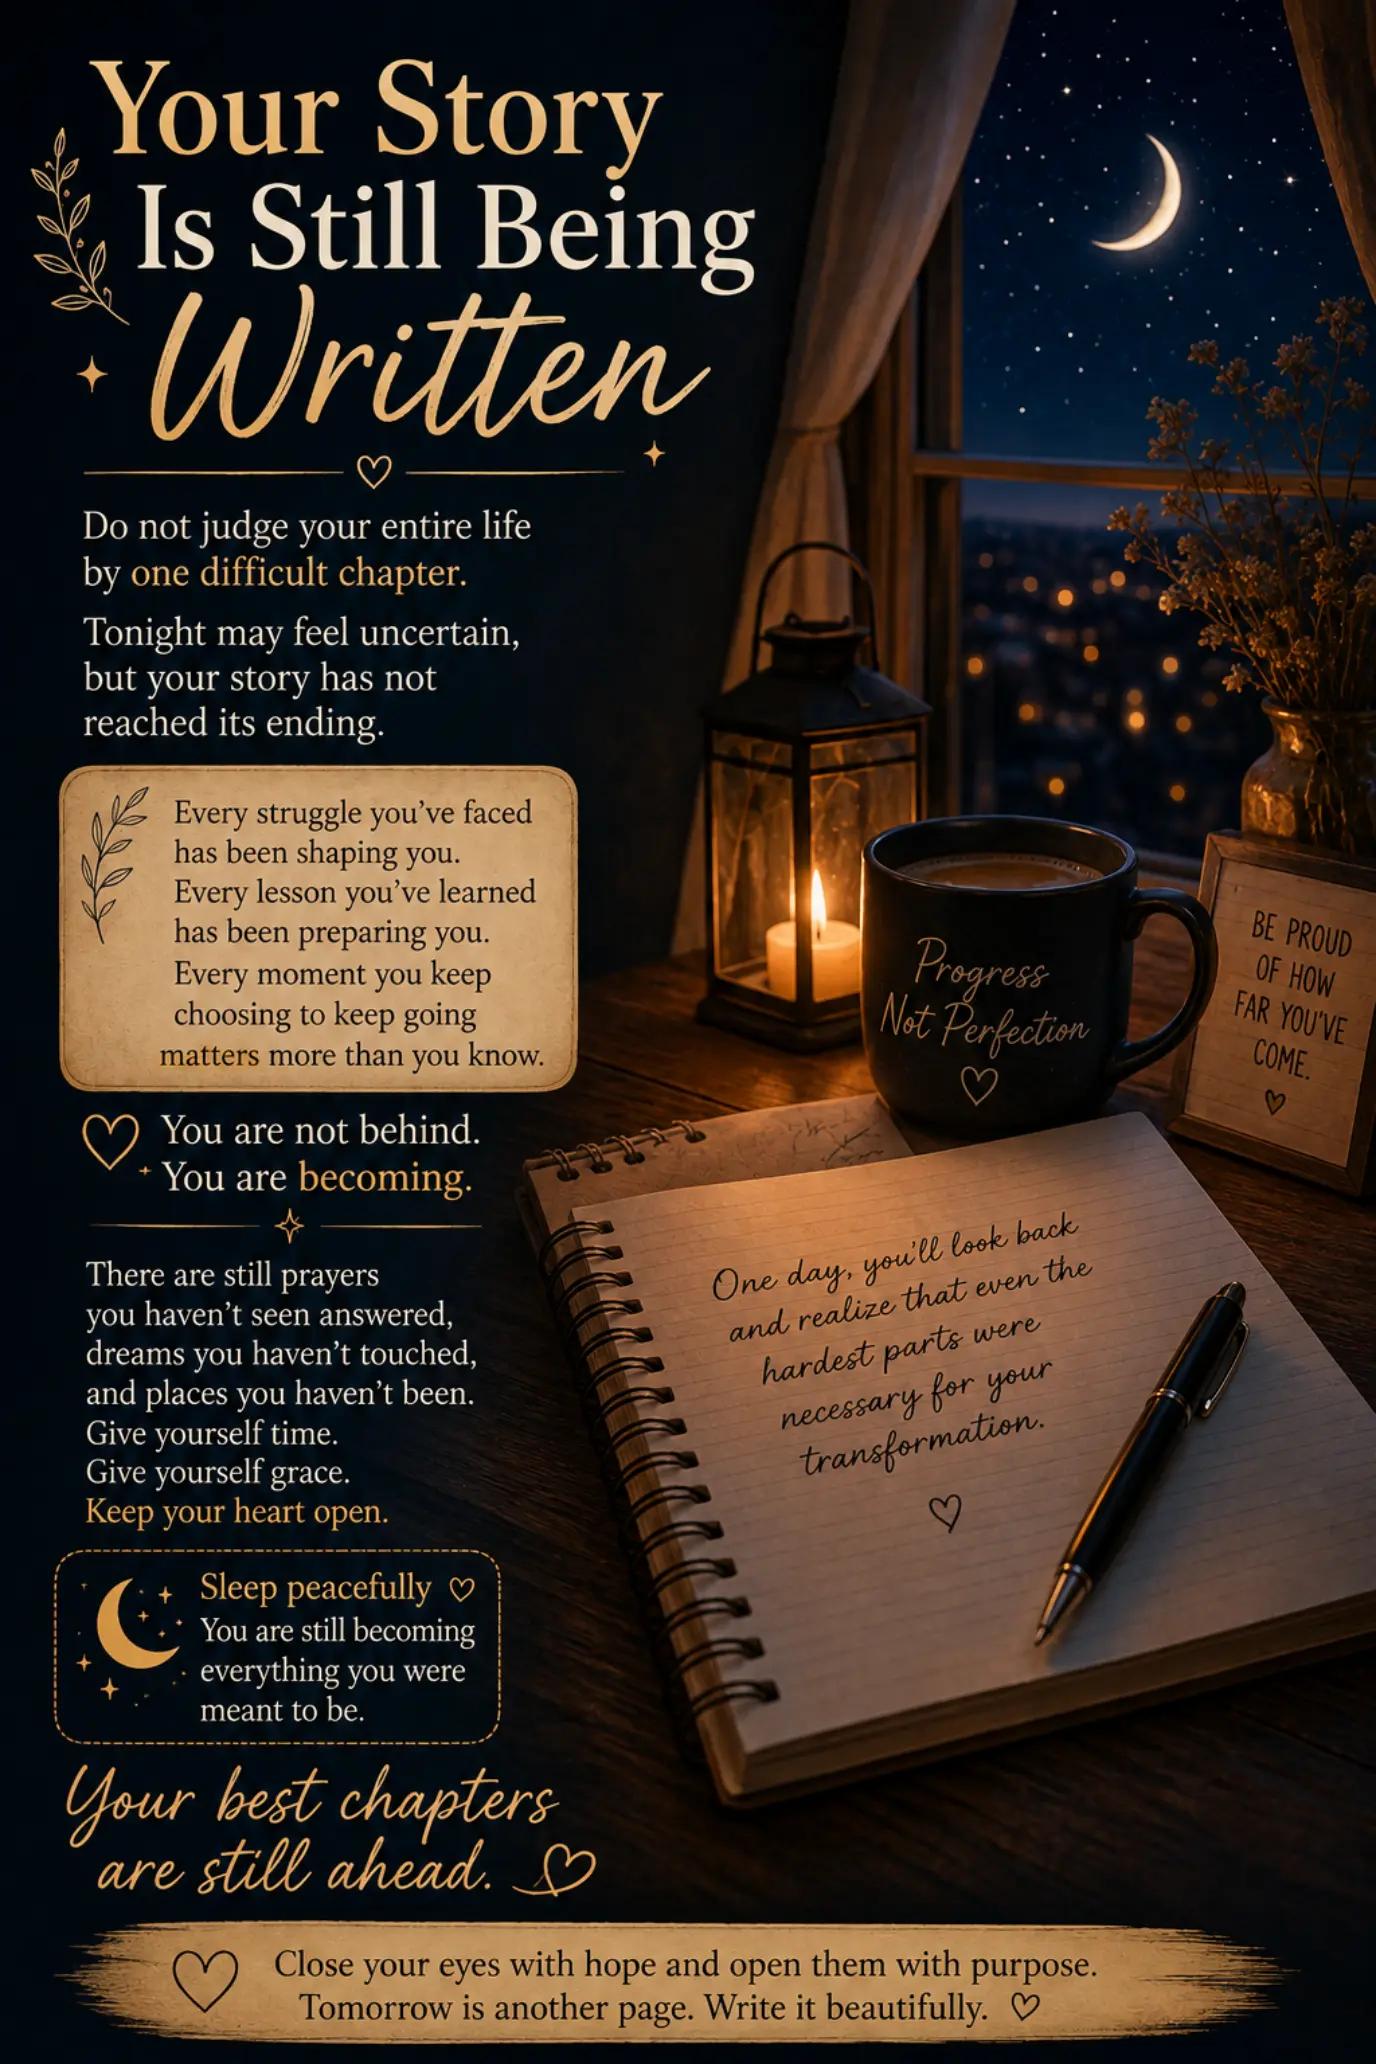 Your Story
Is Still Being
Written
Do not judge your entire life
by one difficult chapter.
Tonight may feel uncertain,
but your story has not
reached its ending.
Every struggle you've faced
has been shaping you.
Every lesson you've learned
has been preparing you.
Every moment you keep
choosing to keep going
matters more than you know.
You are not behind.
You are becoming.
There are still prayers
you haven't seen answered,
dreams you haven't touched,
and places you haven't been.
Give yourself time.
Give yourself grace.
Keep your heart open.
Sleep peacefully
You are still becoming
everything you were
meant to be.
Your best chapters
are still ahead.
Progress
Not Perfection
BE PROUD
OF HOW
FAR YOU'VE
COME.
One day, you'll look back
and realize that even the
hardest parts were
necessary for your
transformation.
Close your eyes with hope and open them with purpose.
Tomorrow is another page. Write it beautifully.